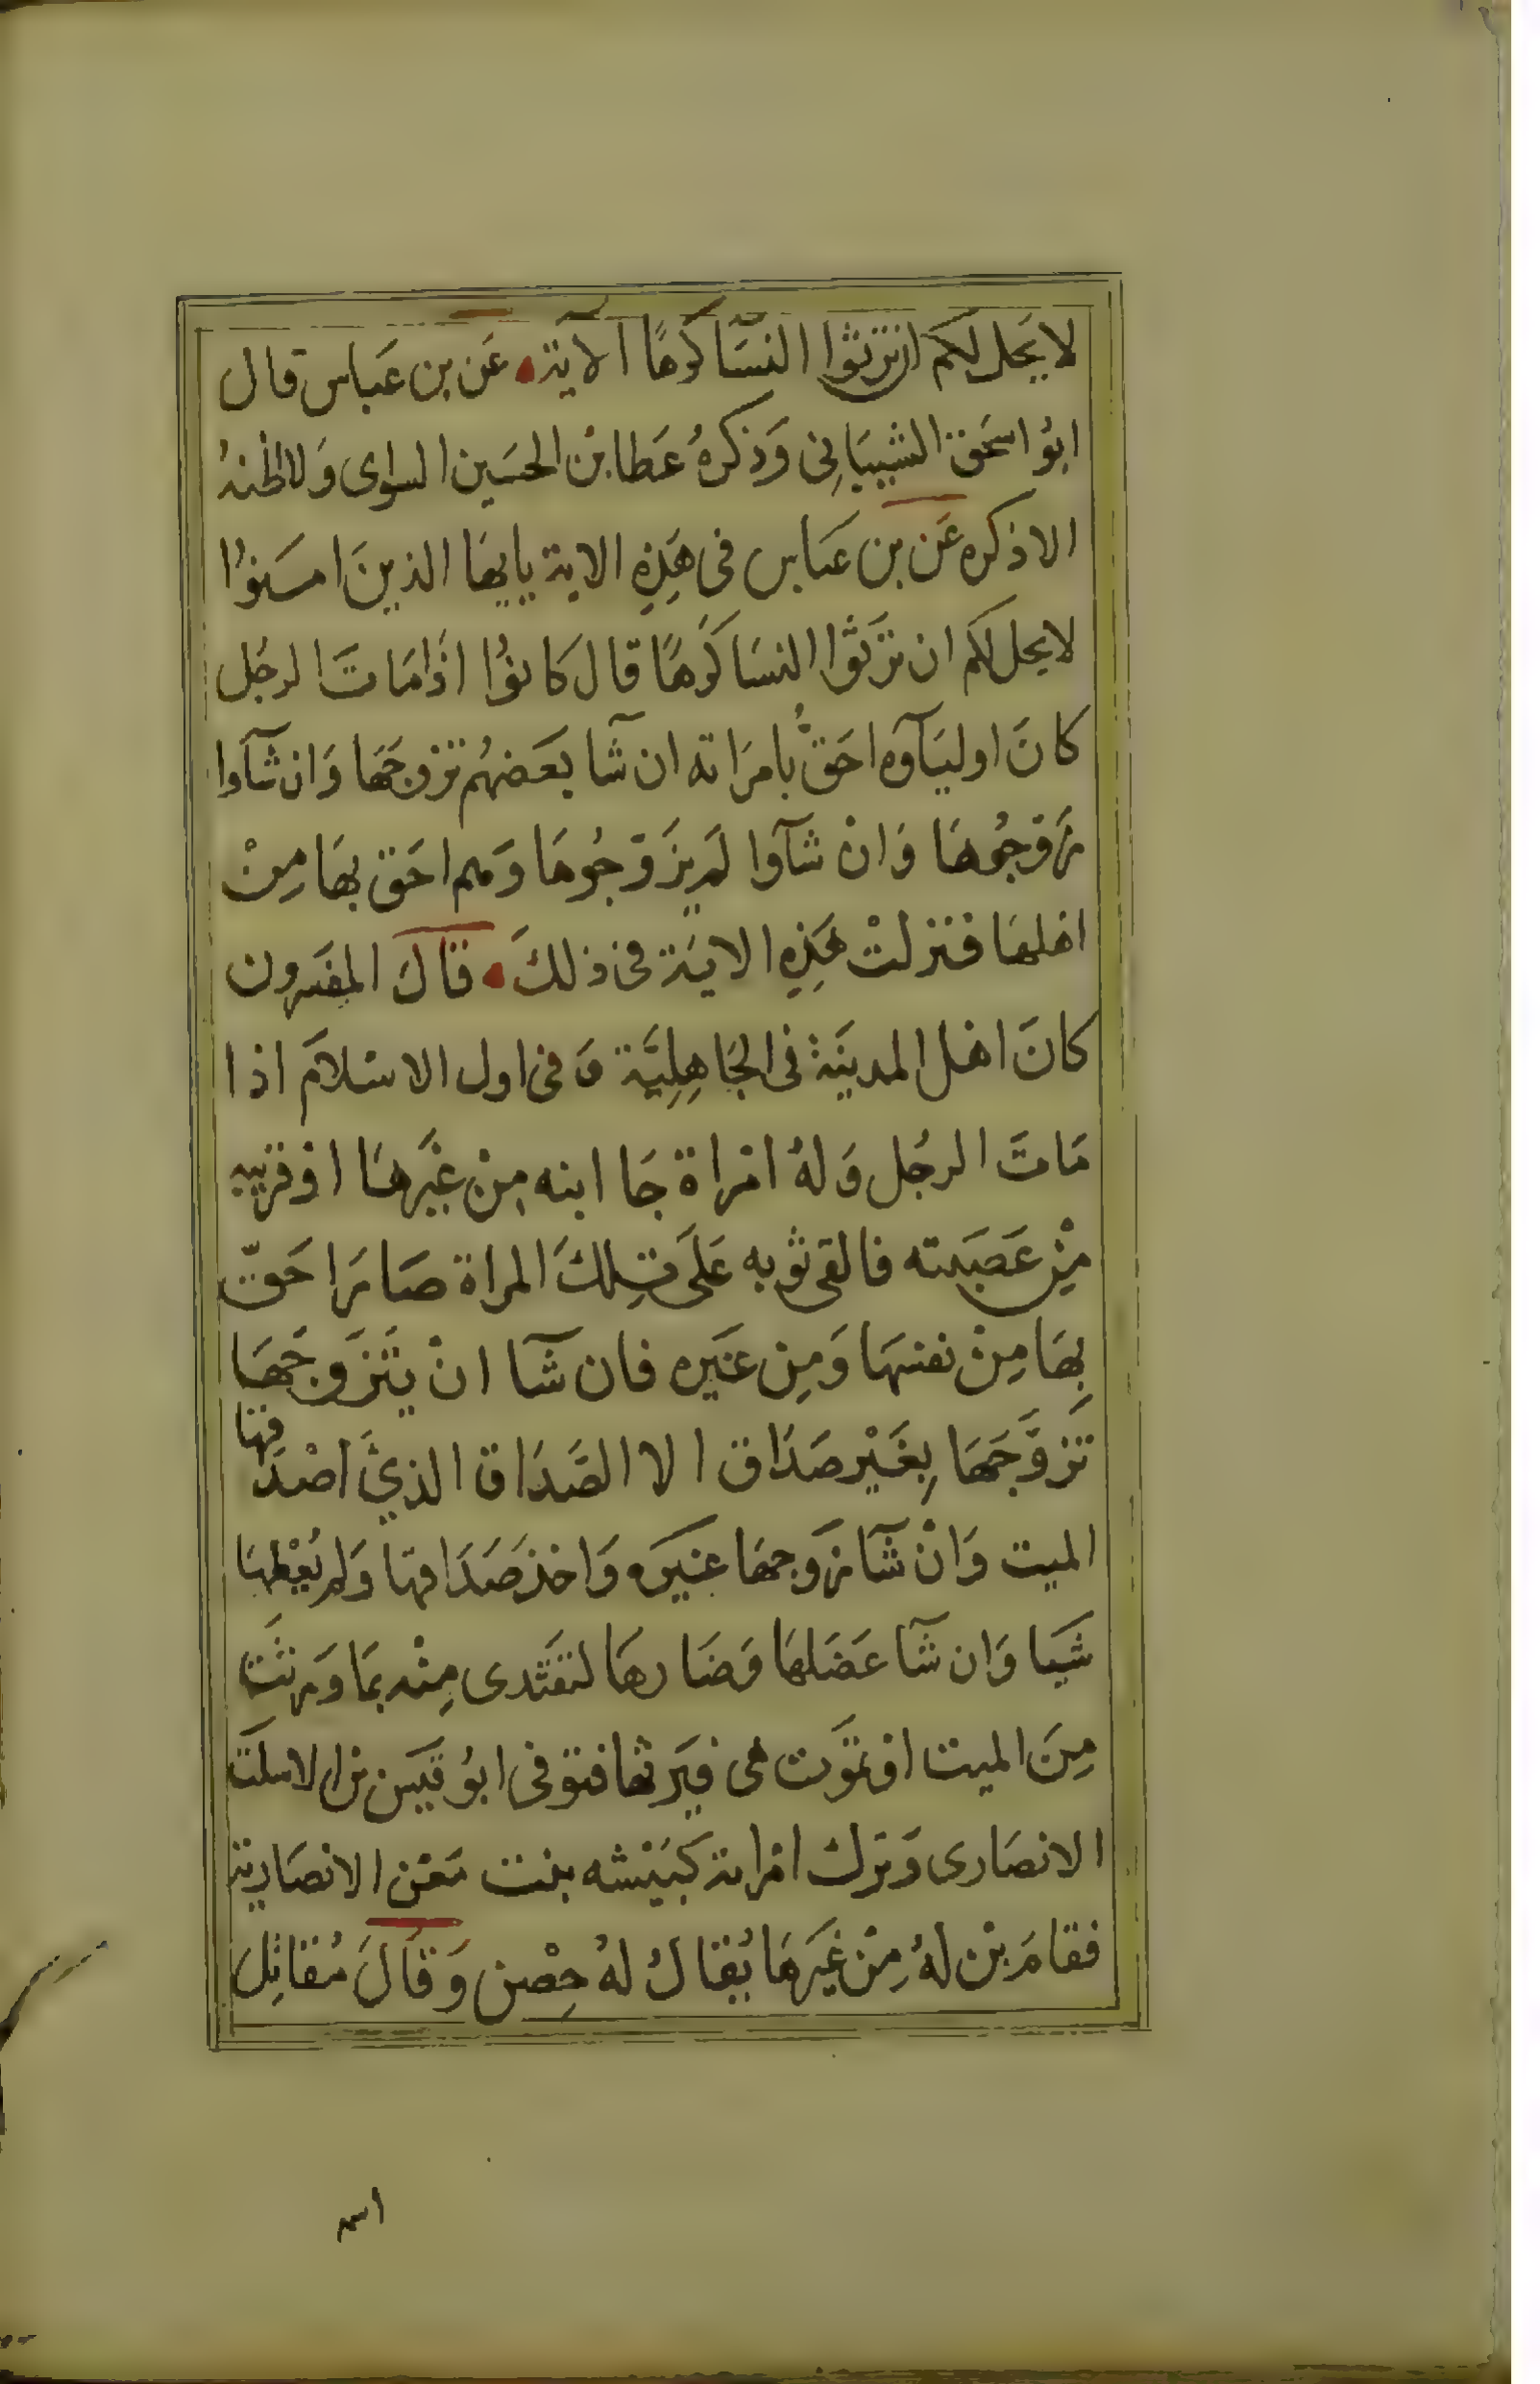 لا يَحل لكم ان ترثوا النسَّا كَرهًا الآية عَن بن عَباس قال
ابوُ اسحَق الشيبَانِى وَذكرهُ عَطا بن الحسَين السواى وَلا اظنهُ
الا ذكره عَن بن عَباس فى هَذِهِ الاية يايها الذينَ امَنوُا
لا يحل لكم ان تَرثوا النسَا كَرهًا قال كَانوُا اذَا مَاتَ الرجُل
كانَ اوليَآوه احَقُّ بامرَاته ان شَآ بَعَضهُم تزوجَهَا وَان شَآوا
زَوجُوهَا وَانْ شآوا لَم يزَوجُوهَا وَهم احَق بهَا مِنْ
اهلهَا فنزلتْ هَذِهِ الايَة فى ذلكَ قالَ المفسرون
كانَ اهل المدينَة فى الجَاهِلِيَّة وَفى اول الاسْلامَ اذا
مَاتَ الرجُل وَلهُ امْراة جَا ابنه مِنْ غَيرهَا اوْ قريبه
مِنْ عَصَبته فالقى ثوبه عَلَى تِلكَ المراة صَارَ احَقّ
بِهَا مِنْ نفسهَا وَمِن غَيره فان شَآ انْ يَتَزَوجَهَا
تَزوَّجَهَا بِغَيْر صَدَاق الا الصَّدَاق الذىَّ اصْدَقها
الميت وَانْ شَآ زوجهَا غيَره وَاخذ صَدَاقها وَلم يُعْطهَا
شَيا وَان شَآ عَضَلهَا وَضَارهَا لتفتَدى مِنْه بمَا وَرثتَ
مِنَ الميت اوْ تموَت هى فيَرثها فتوفى ابوُ قيَس بن الاسلَت
الانصَارى وَترك امْراته كبَيْشه بنت مَعْن الانصَارية
فقامَ بْن لهُ مِنْ غيَرهَا يُقالُ لهُ حِصْن وَقالَ مُقاتِلَ